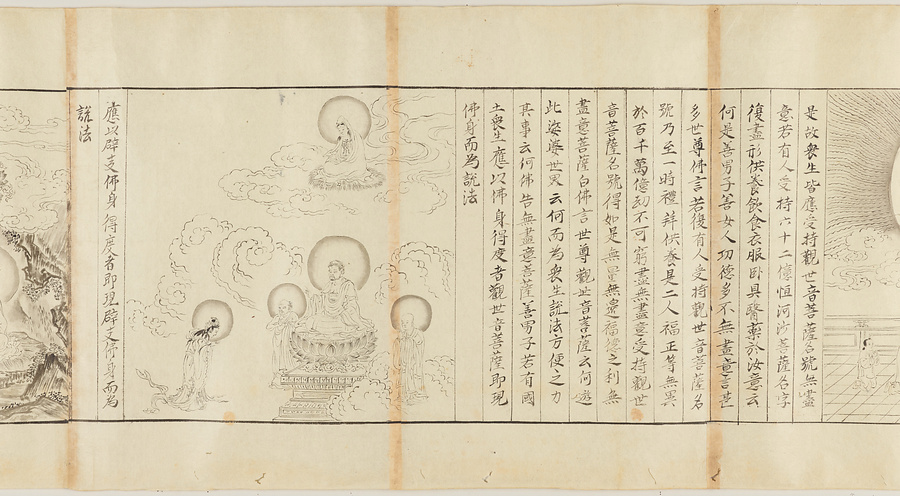 是故衆生皆應受持觀世音菩薩名號無盡
意若有人受持六十二億恒河沙菩薩名字
復盡形供養飲食衣服卧具醫藥於汝意云
何是善男子善女人功德多不無盡意言甚
多世尊佛言若復有人受持觀世音菩薩名
號乃至一時禮拜供養是二人福正等無異
於百千萬億劫不可窮盡無盡意受持觀世
音菩薩名號得如是無量無邊福德之利無
盡意菩薩白佛言世尊觀世音菩薩云何遊
此娑婆世界云何而為衆生說法方便之力
其事云何佛告無盡意菩薩善男子若有國
土衆生應以佛身得度者觀世音菩薩即現
佛身而為說法
應以辟支佛身得度者即現辟支佛身而為
說法